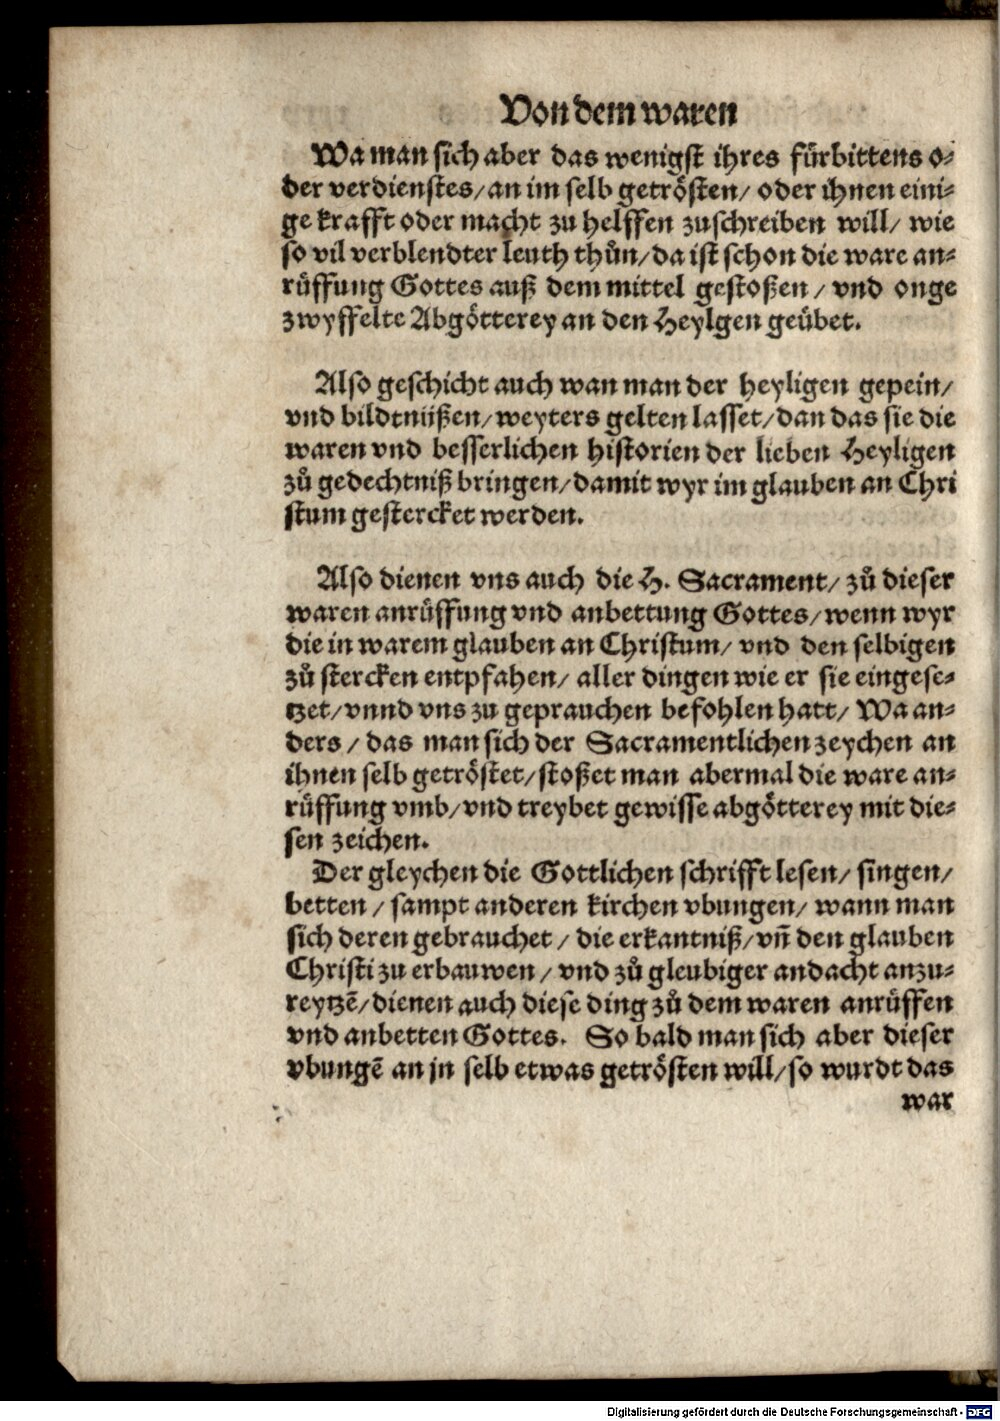 Von dem waren
Wa man sich aber das wenigst ihres fürbittens o⸗
der verdienstes/ an im selb getrösten/ oder ihnen eini⸗
ge krafft oder macht zu helffen zuschreiben will/ wie
so vil verblendter leuth thůn/ da ist schon die ware an⸗
rüffung Gottes auß dem mittel gestoßen / vnd onge
zwyffelte Abgötterey an den Heylgen geübet.
Also geschicht auch wan man der heyligen gepein/
vnd bildtnüßen/ weyters gelten lasset/ dan das sie die
waren vnd besserlichen historien der lieben Heyligen
zů gedechtniß bringen/ damit wyr im glauben an Chri
stum gestercket werden.
Also dienen vns auch die H. Sacrament/ zů dieser
waren anrüffung vnd anbettung Gottes/ wenn wyr
die in warem glauben an Christum/ vnd den selbigen
zů stercken entpfahen/ aller dingen wie er sie eingese⸗
tzet/ vnnd vns zu geprauchen befohlen hatt/ Wa an⸗
ders / das man sich der Sacramentlichen zeychen an
ihnen selb getröstet/ stoßet man abermal die ware an⸗
rüffung vmb/ vnd treybet gewisse abgötterey mit die⸗
sen zeichen.
Der gleychen die Gottlichen schrifft lesen/ singen/
betten / sampt anderen kirchen vbungen/ wann man
sich deren gebrauchet / die erkantniß/ vñ den glauben
Christi zu erbauwen / vnd zů gleubiger andacht anzu⸗
reytzē/ dienen auch diese ding zů dem waren anrüffen
vnd anbetten Gottes. So bald man sich aber dieser
vbungē an jn selb etwas getrösten will/ so wurdt das
war
Digitalisierung gefördert durch die Deutsche Forschungsgemeinschaft - DFG